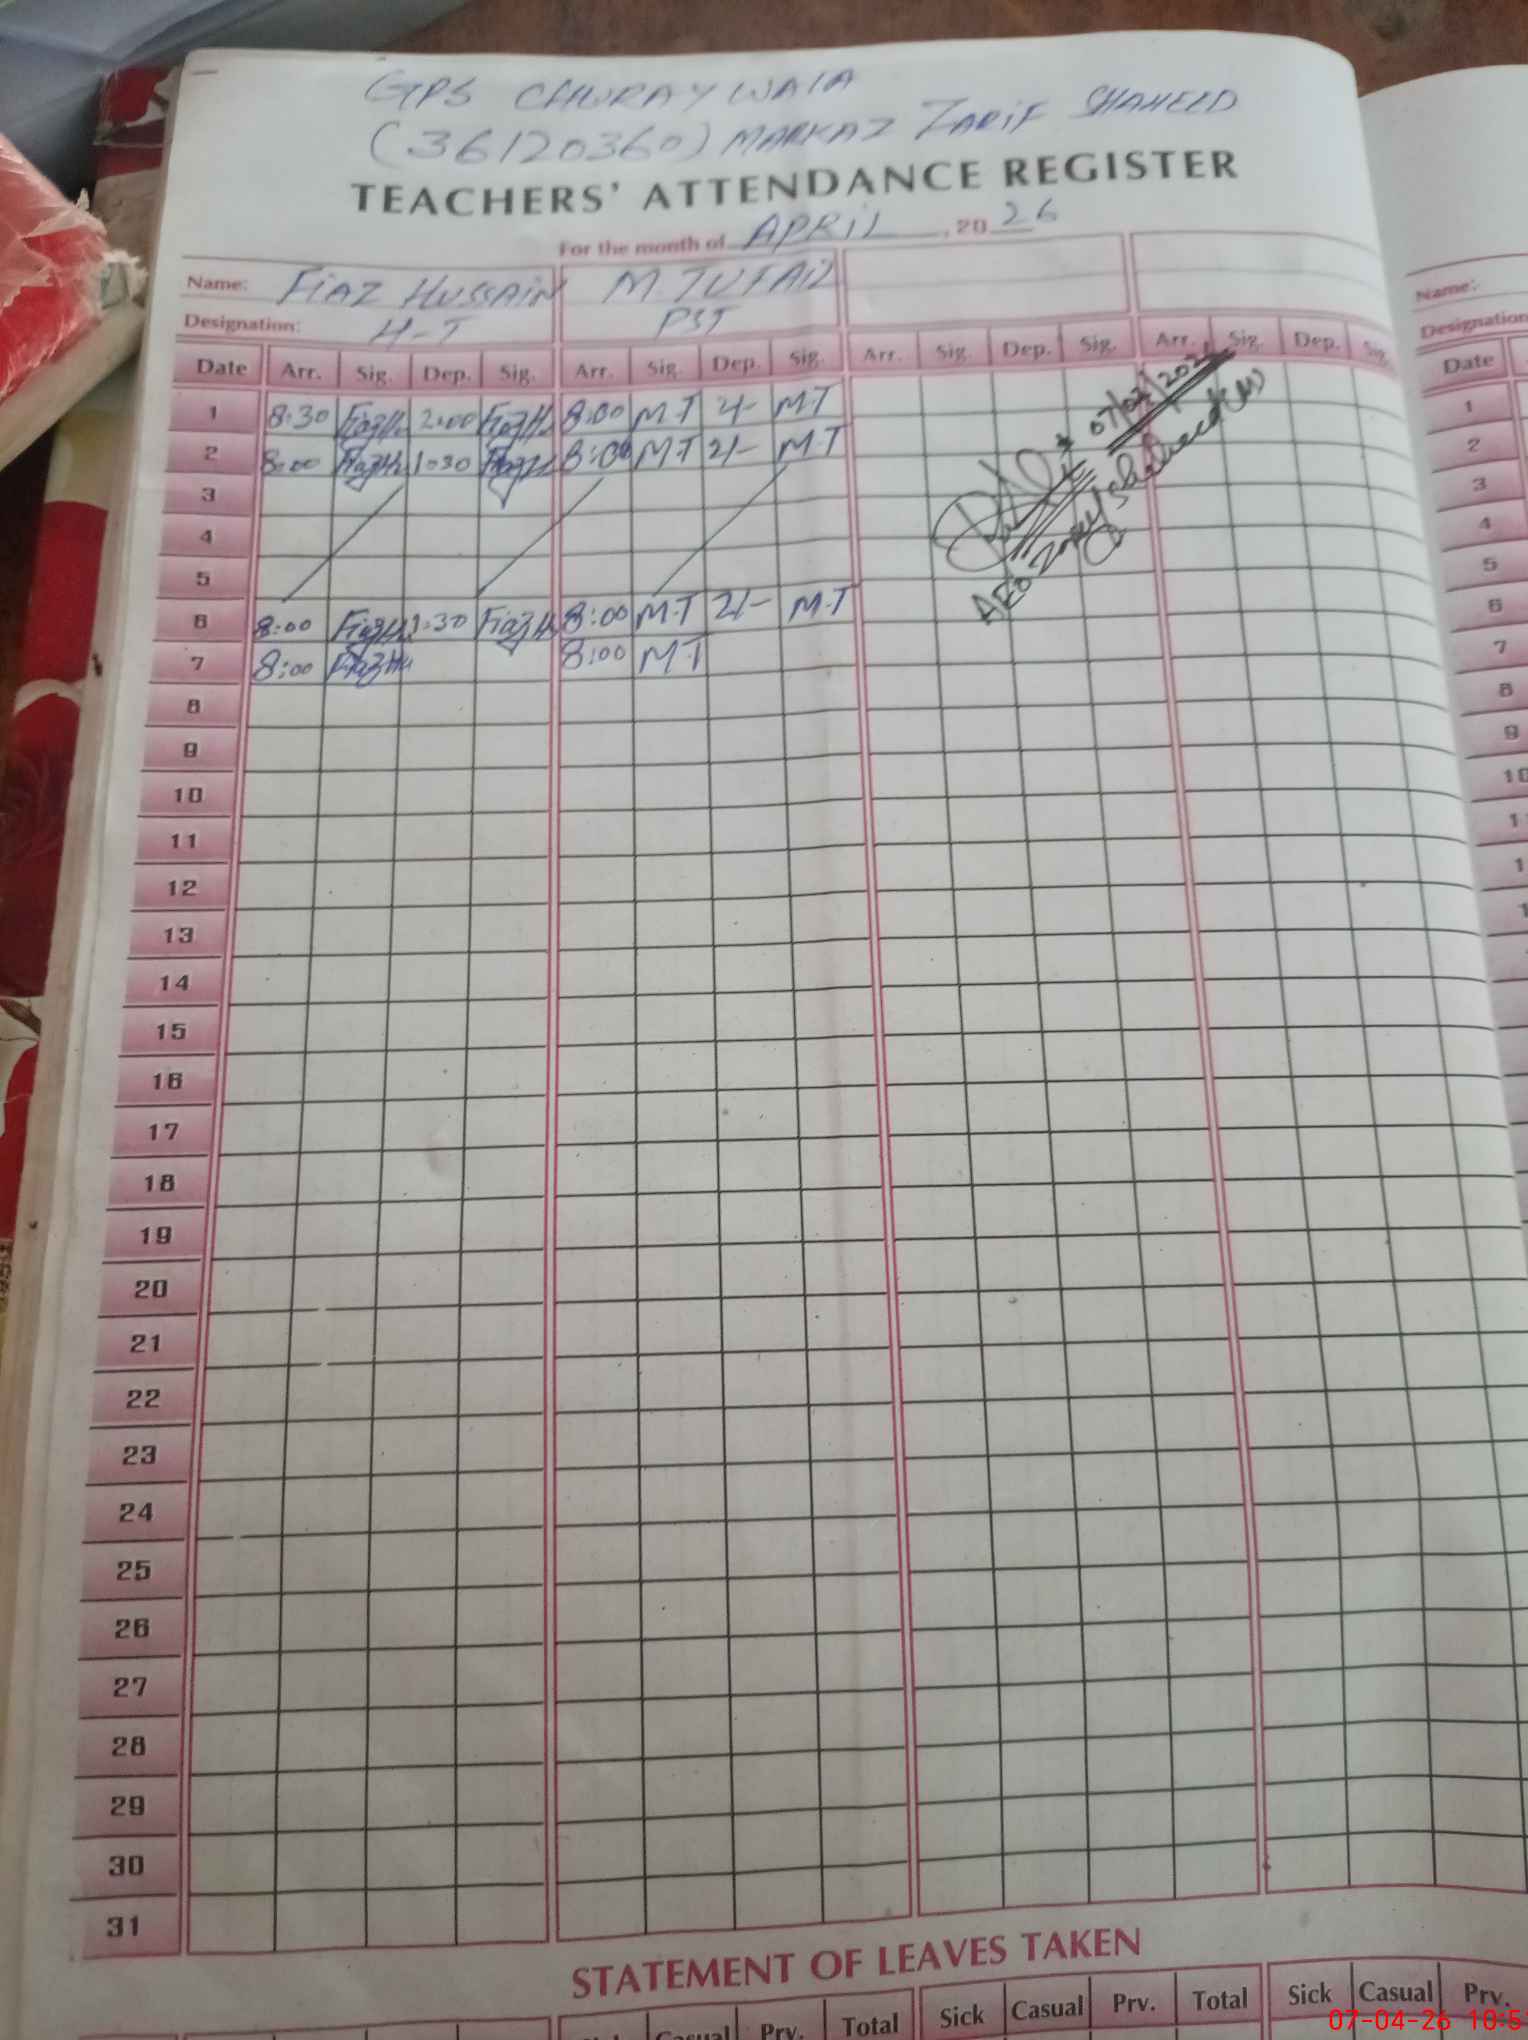 GPS CHURAYWALA
(36120360) MARKAZ ZARIF SHAHEED
TEACHERS' ATTENDANCE REGISTER
For the month of APRIL, 2026
Name: FIAZ HUSSAIN M.TUFAIL
Designation: H-T PST
Date Arr. Sig. Dep. Sig. Arr. Sig. Dep. Sig. Arr. Sig. Dep. Sig. Arr. Sig. Dep. Sig.
1 8:30 FiazHu 2:00 FiazHu 8:00 M.T 2/- M.T
2 8:00 FiazHu 1:30 8:00 M.T 2/- M.T
3
4
5
6 8:00 FiazHu 1:30 FiazHu 8:00 M.T 2/- M.T
7 8:00 FiazHu 8:00 M.T
8
9
10
11
12
13
14
15
16
17
18
19
20
21
22
23
24
25
26
27
28
29
30
31
AEO Shaheed (M)
STATEMENT OF LEAVES TAKEN
Casual Prv. Total Sick Casual Prv. Total Sick Casual Prv.
Name:
Designation
Date
1
2
3
4
5
6
7
8
9
10
07-04-26 10:5